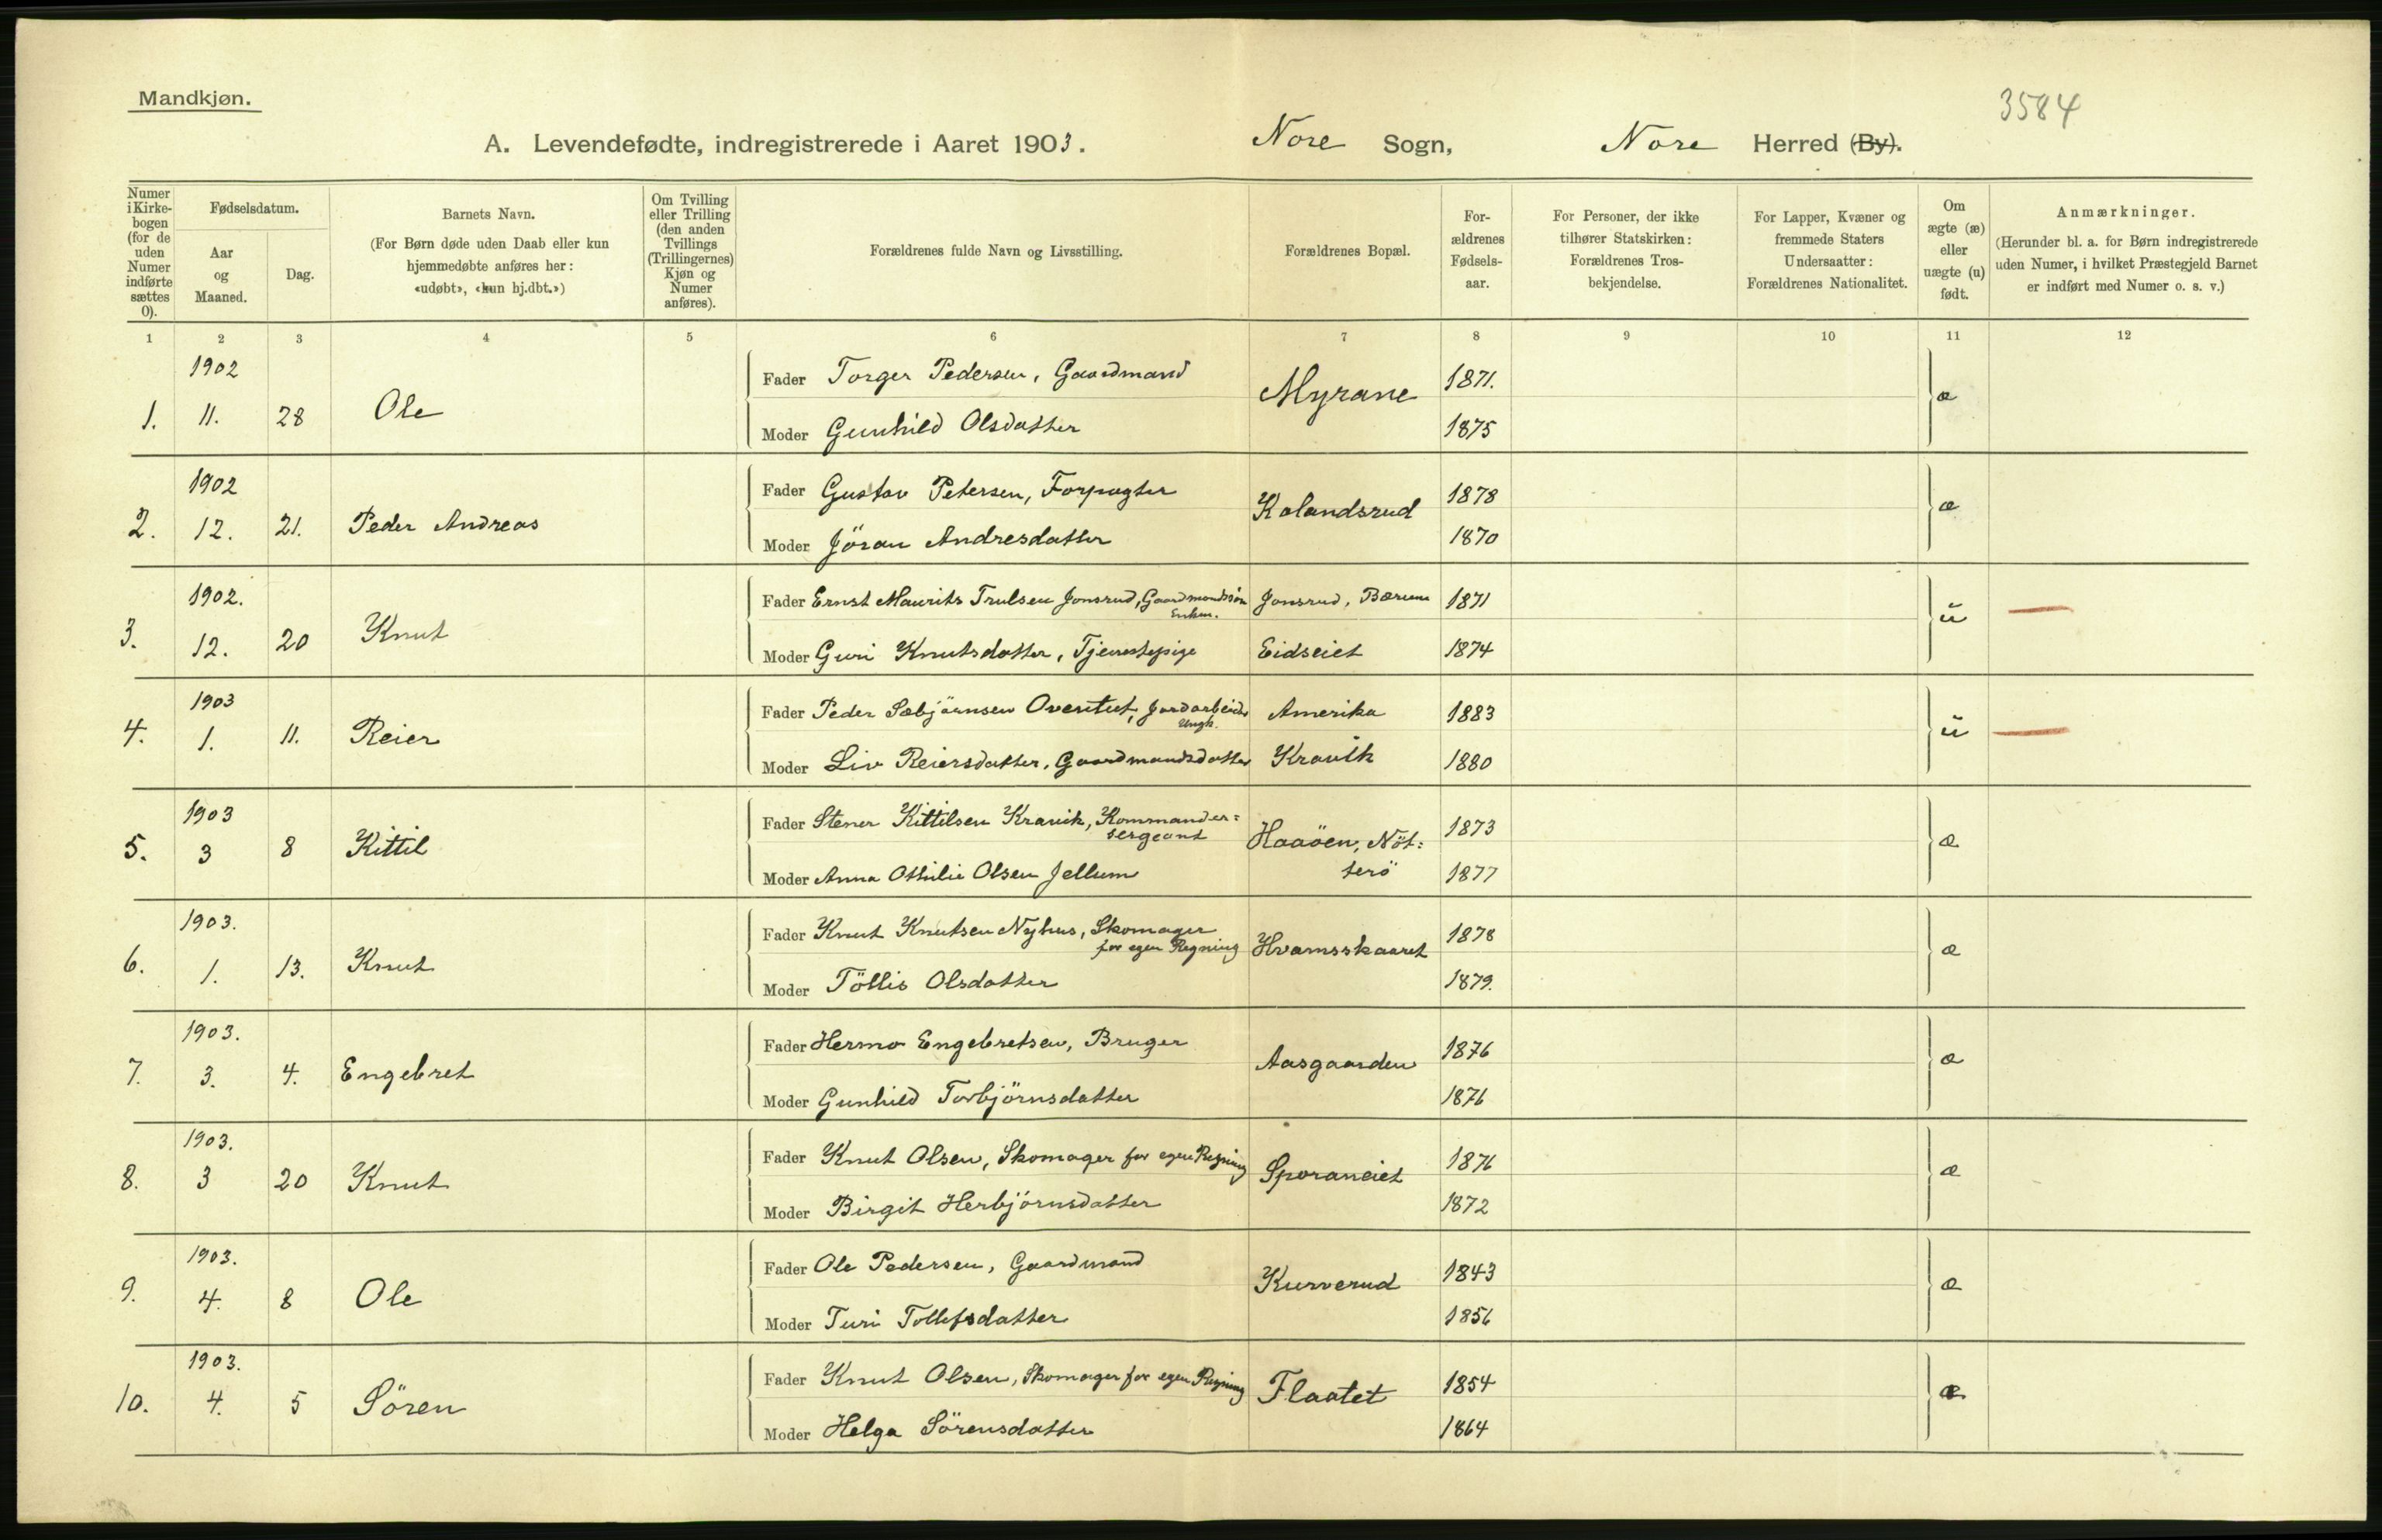 Mandkjøn.
3584
A. Levendefødte, indregistrerede i Aaret 1903. Nore Sogn, Nore Herred (By).
Numer i Kirkebogen (for de uden Numer indførte sættes 0).
Fødselsdatum.
Aar og Maaned.
Dag.
Barnets Navn.
(For Børn døde uden Daab eller kun hjemmedøbte anføres her: «udøbt», «kun hj.dbt.»)
Om Tvilling eller Trilling (den anden Tvillings (Trillingernes) Kjøn og Numer anføres).
Forældrenes fulde Navn og Livsstilling.
Forældrenes Bopæl.
Forældrenes Fødselsaar.
For Personer, der ikke tilhører Statskirken: Forældrenes Trosbekjendelse.
For Lapper, Kvæner og fremmede Staters Undersaatter: Forældrenes Nationalitet.
Om ægte (æ) eller uægte (u) født.
Anmærkninger.
(Herunder bl. a. for Børn indregistrerede uden Numer, i hvilket Præstegjeld Barnet er indført med Numer o. s. v.)
1 2 3 4 5 6 7 8 9 10 11 12
1902 Fader Torger Pedersen, Gaardmand Myrane 1871. æ
1. 11. 28 Ole Moder Gunhild Olsdatter 1875
1902 Fader Gustav Petersen, Forpagter Kolandsrud 1878 æ
2. 12. 21. Peder Andreas Moder Jöran Andresdatter 1870
1902. Fader Ernst Maurits Trulsen Jonsrud, Gaardmandssön Jonsrud, Bærum 1871 ú
Enkem.
3. 12. 20 Knut Moder Guri Knutsdatter, Tjenestepige Eidseiet 1874
1903 Fader Peder Sæbjörnsen Jordarbeider Amerika 1883 ú
Ungk.
4. 1. 11. Reier Moder Liv Reiersdatter, Gaardmandsdatter Kravik 1880
1903 Fader Stener Kittilsen Kravik, Kommander= Haaöen, Nöt= 1873 æ
sergeant
5. 3 8 Kittil Moder Anna Othilie Olsen Jellum terö 1877
1903. Fader Knut Knutsen Nyhus, Skomager Hvamsskaaret 1878 æ
for egen Regning
6. 1. 13. Knut Moder Töllis Olsdatter 1879.
1903. Fader Hermo Engebretsen, Bruger Aasgaarden 1876 æ
7. 3. 4. Engebret Moder Gunhild Torbjörnsdatter 1876
1903. Fader Knut Olsen, Skomager for egen Regning Sporaneiet 1876 æ
8. 3 20 Knut Moder Birgit Herbjörnsdatter 1872
1903. Fader Ole Pedersen, Gaardmand Kurverud 1843 æ
9. 4. 8 Ole Moder Turi Tollefsdatter 1856
1903. Fader Knut Olsen, Skomager for egen Regning Flaatet 1854 æ
10. 4. 5 Sören Moder Helga Sörensdatter 1864